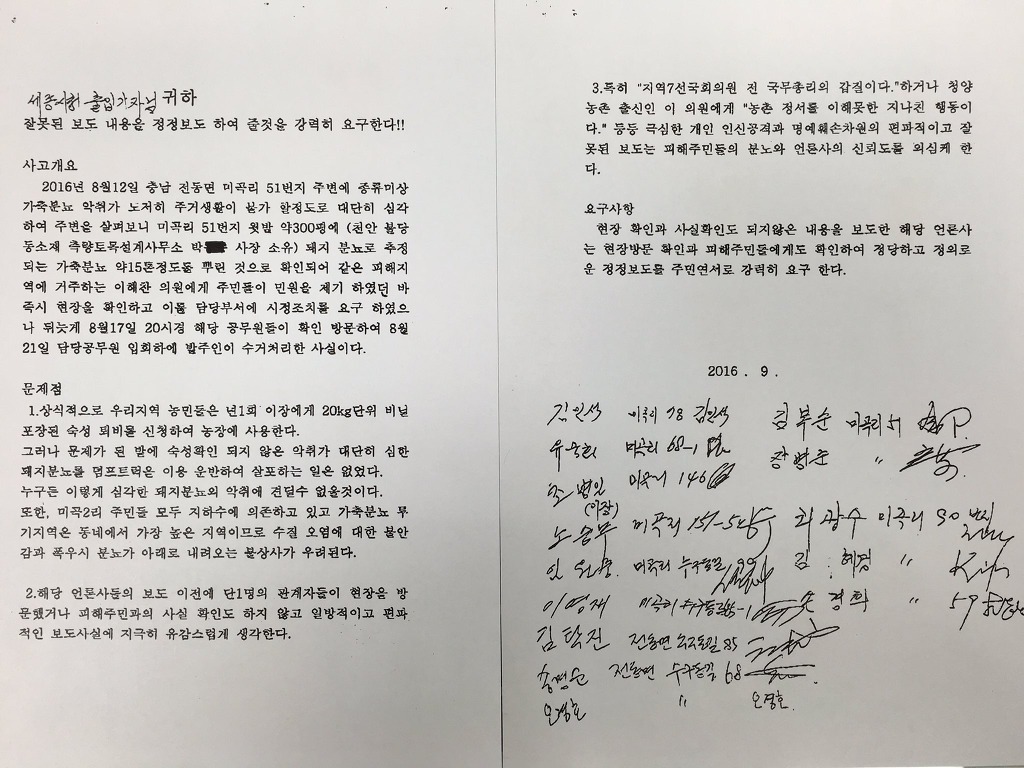 세종시청 출입기자님 귀하
잘못된 보도 내용을 정정보도 하여 줄것을 강력히 요구한다!!
사고개요
2016년 8월12일 충남 전동면 미곡리 51번지 주변에 종류미상
가축분뇨 악취가 노저히 주거생활이 불가 할정도로 대단히 심각
하여 주변을 살펴보니 미곡리 51번지 윗밭 약300평에 (천안 불당
동소재 측량토목설계사무소 박 사장 소유) 돼지 분뇨로 추정
되는 가축분뇨 약15톤정도를 뿌린 것으로 확인되어 같은 피해지
역에 거주하는 이해찬 의원에게 주민들이 민원을 제기 하였던 바
즉시 현장을 확인하고 이를 담당부서에 시정조치를 요구 하였으
나 뒤늦게 8월17일 20시경 해당 공무원들이 확인 방문하여 8월
21일 담당공무원 입회하에 밭주인이 수거처리한 사실이다.
문제점
1.상식적으로 우리지역 농민들은 년1회 이장에게 20kg단위 비닐
포장된 숙성 퇴비를 신청하여 농장에 사용한다.
그러나 문제가 된 밭에 숙성확인 되지 않은 악취가 대단히 심한
돼지분뇨를 덤프트럭을 이용 운반하여 살포하는 일은 없었다.
누구든 이렇게 심각한 돼지분뇨외 악취에 견딜수 없을것이다.
또한, 미곡2리 주민들 모두 지하수에 의존하고 있고 가축분뇨 투
기지역은 동네에서 가장 높은 지역이므로 수질 오염에 대한 불안
감과 폭우시 분뇨가 아래로 내려오는 불상사가 우려된다.
2.해당 언론사들의 보도 이전에 단1명의 관계자들이 현장을 방
문했거나 피해주민과의 사실 확인도 하지 않고 일방적이고 편파
적인 보도사실에 지극히 유감스럽게 생각한다.
3.특히 "지역7선국회의원 전 국무총리의 갑질이다."하거나 청양
농촌 출신인 이 의원에게 "농촌 정서를 이해못한 지나친 행동이
다." 등등 극심한 개인 인신공격과 명예훼손차원의 편파적이고 잘
못된 보도는 피해주민들의 분노와 언론사의 신뢰도를 의심케 한
다.
요구사항
현장 확인과 사실확인도 되지않은 내용을 보도한 해당 언론사
는 현장방문 확인과 피해주민들에게도 확인하여 정당하고 정의로
운 정정보도를 주민연서로 강력히 요구 한다.
2016 . 9 .
김인석 미곡리 78 김인석
김복순 미곡리 51
미곡리 60-1
장병순 "
미곡리 146
(이장)
노승무 미곡리 151-5
최광수 미곡리 90 번지
미곡리 수구동길
김혜경 "
이영재 미곡리 수구동길 85-1
손경희 " 59
김탁진 전동면 수구동길 85
송명순 전동면 수구동길 68
오경호 " 오경호